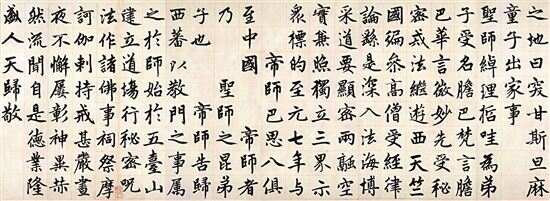 之地曰突甘斯旦麻
童子出家事
聖師綽理哲哇為弟
子受名膽巴梵言膽
巴華言微妙先受秘
密戒法繼遊西天竺
國徧參高僧受經律
論繇是深入法海博
采道要顯密兩融空
實兼照獨立三界示
眾標的至元七年與
帝師巴思八俱
至中國 帝師者
乃 聖師之昆弟
子也 帝師告歸
西蕃以教門之事屬
之於師始於五臺山
建立道場行秘密咒
法作諸佛事祠祭摩
訶伽剌持戒甚嚴晝
夜不懈屢彰神異赫
然流聞自是德業隆
盛人天歸敬